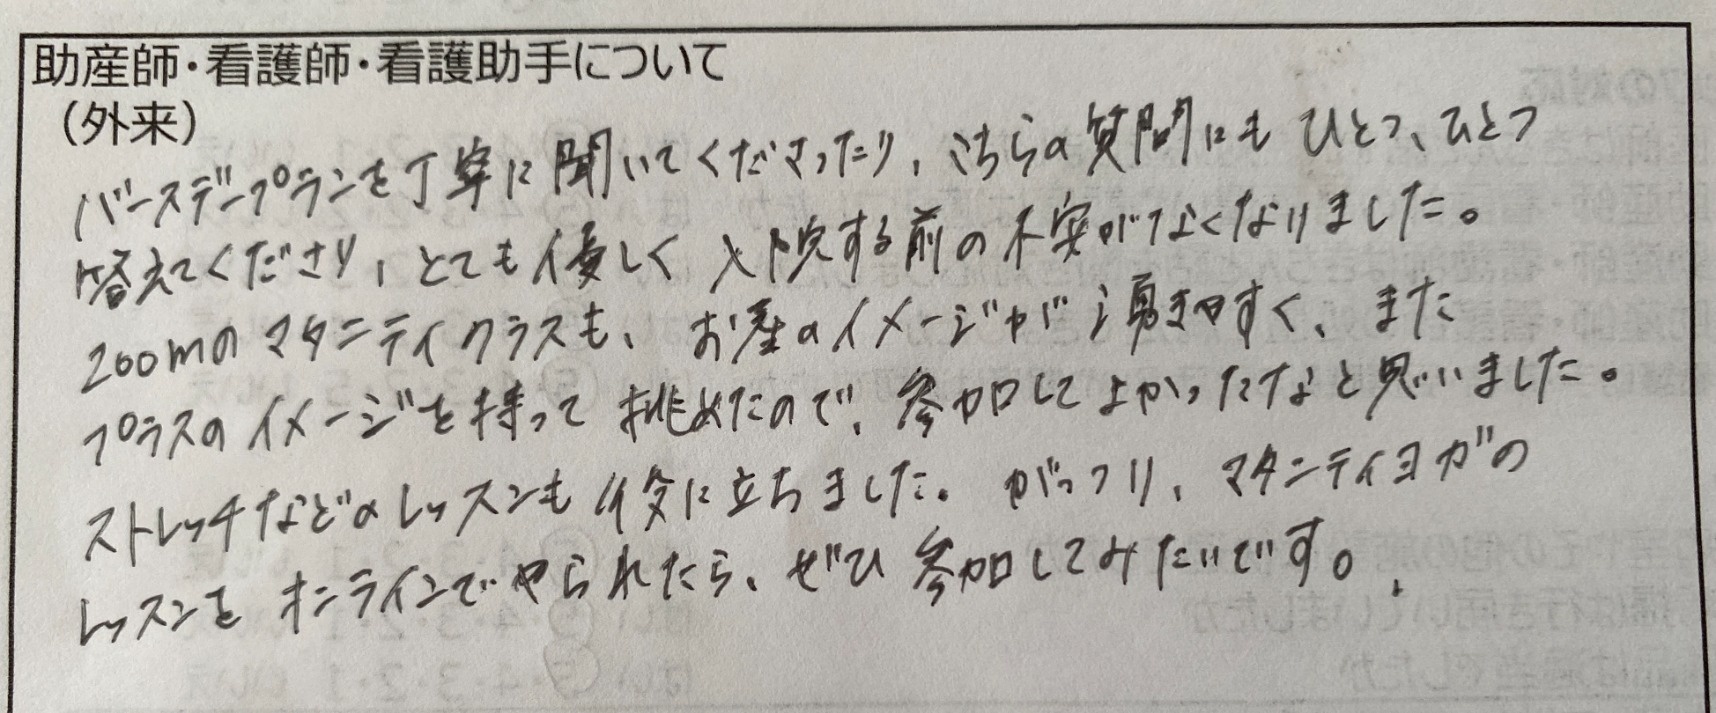 助産師・看護師・看護助手について
（外来）
バースデープランを丁寧に聞いてくださったり、こちらの質問にもひとつ、ひとつ
答えてくださり、とても優しく入院する前の不安がなくなりました。
200mのマタニティクラスも、お産のイメージが湧きやすく、また
プラスのイメージを持って挑めたので、参加してよかったなと思いました。
ストレッチなどのレッスンも役に立ちました。がっつり、マタニティヨガの
レッスンをオンラインでやられたら、ぜひ参加してみたいです。